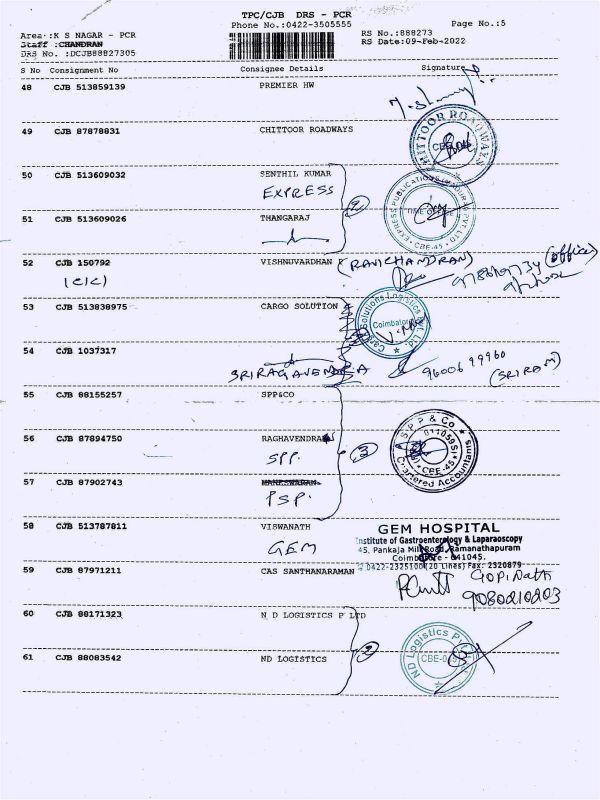 TPC/CJB DRS - PCR
Phone No.:0422-3505555
Page No.:5
Area :K S NAGAR - PCR
Staff :CHANDRAN
DRS No. :DCJB88827305
RS No.:888273
RS Date:09-Feb-2022
S No Consignment No Consignee Details Signature
48 CJB 513859139 PREMIER HW
49 CJB 87878831 CHITTOOR ROADWAYS
CHITTOOR ROADWAYS
50 CJB 513609032 SENTHIL KUMAR
EXPRESS
EXPRESS PUBLICATIONS (MADURAI) PVT LTD
TIME OFFICE
CBE-45
51 CJB 513609026 THANGARAJ
52 CJB 150792 VISHNUVARDHAN
(RAVICHANDRAN)
(office)
53 CJB 513838975 CARGO SOLUTION
Cargo Solutions Logistics Pvt. Ltd.
Coimbatore
54 CJB 1037317
SRIRAGAVENDRA
9600699960
(SRIRAM)
55 CJB 88155257 SPP&CO
56 CJB 87894750 RAGHAVENDRA
SPP.
S P P & Co
011059S
CBE-45
Chartered Accountants
57 CJB 87902743 MANESWARAN
PSP.
58 CJB 513787811 VISWANATH
GEM
GEM HOSPITAL
Institute of Gastroenterology & Laparoscopy
45, Pankaja Mill Road, Ramanathapuram
Coimbatore - 641045.
0422-2325100 (20 Lines) Fax: 2320879
59 CJB 87971211 CAS SANTHANARAMAN
GOPINATH
9080210203
60 CJB 88171323 N D LOGISTICS P LTD
61 CJB 88083542 ND LOGISTICS
ND Logistics